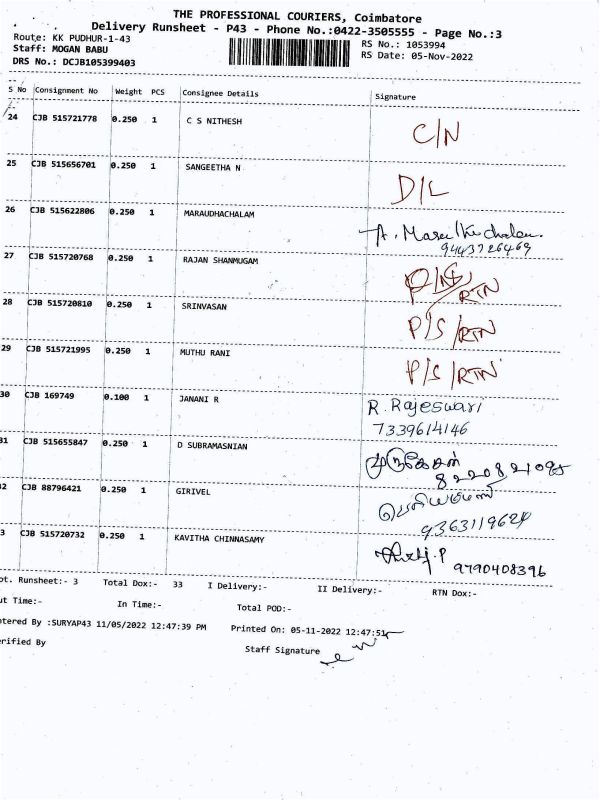 THE PROFESSIONAL COURIERS, Coimbatore
Delivery Runsheet - P43 - Phone No.:0422-3505555 - Page No.:3
Route: KK PUDHUR-1-43
Staff: MOGAN BABU
DRS No.: DCJB105399403
RS No.: 1053994
RS Date: 05-Nov-2022
S No Consignment No Weight PCS Consignee Details Signature
24 CJB 515721778 0.250 1 C S NITHESH C/N
25 CJB 515656701 0.250 1 SANGEETHA N D/L
26 CJB 515622806 0.250 1 MARAUDHACHALAM A.
9443726469
27 CJB 515720768 0.250 1 RAJAN SHANMUGAM /RTN
28 CJB 515720810 0.250 1 SRINVASAN P/S/RTN
29 CJB 515721995 0.250 1 MUTHU RANI P/S/RTN
30 CJB 169749 0.100 1 JANANI R R. Rajeswari
7339614146
31 CJB 515655847 0.250 1 D SUBRAMASNIAN முருகேசன்
2 CJB 88796421 0.250 1 GIRIVEL
9363119624
3 CJB 515720732 0.250 1 KAVITHA CHINNASAMY
9790408396
ot. Runsheet:- 3 Total Dox:- 33 I Delivery:- II Delivery:- RTN Dox:-
ut Time:- In Time:- Total POD:-
ntered By :SURYAP43 11/05/2022 12:47:39 PM Printed On: 05-11-2022 12:47:51
erified By Staff Signature